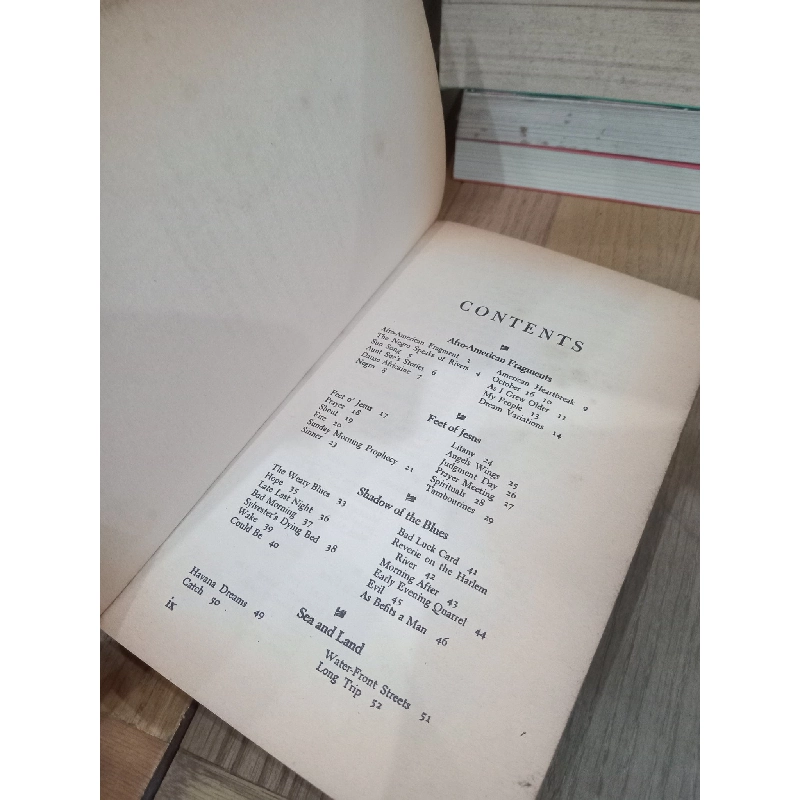 CONTENTS
Afro-American Fragments
Afro-American Fragment 2
The Negro Speaks of Rivers 4
Sun Song 5
Aunt Sue's Stories 6
Danse Africaine 7
Negro 8
American Heartbreak 9
October 16 10
As I Grew Older 11
My People 13
Dream Variations 14
Feet of Jesus
Feet o' Jesus 17
Prayer 18
Shout 19
Fire 20
Sunday Morning Prophecy 21
Sinner 23
Litany 24
Angels Wings 25
Judgment Day 26
Prayer Meeting 27
Spirituals 28
Tambourines 29
Shadow of the Blues
The Weary Blues 33
Hope 35
Late Last Night 36
Bad Morning 37
Sylvester's Dying Bed 38
Wake 39
Could Be 40
Bad Luck Card 41
Reverie on the Harlem
River 42
Morning After 43
Early Evening Quarrel 44
Evil 45
As Befits a Man 46
Sea and Land
Havana Dreams 49
Catch 50
Water-Front Streets 51
Long Trip 52
ix